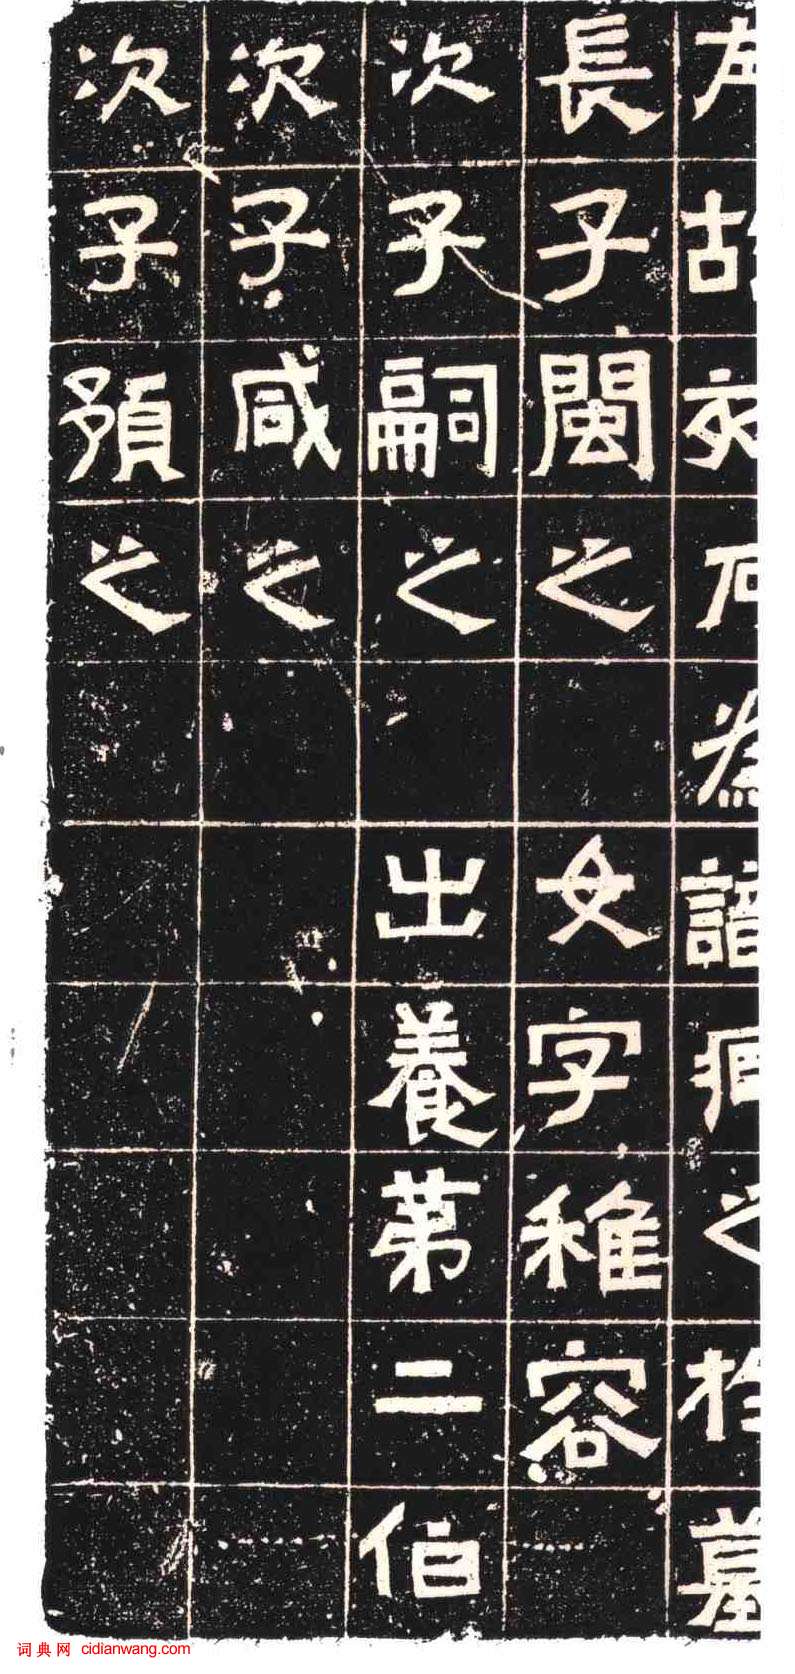 左故刻石為識臧之於墓
長子閩之 女字稚容
次子嗣之 出養第二伯
次子咸之
次子預之
词典网 cidianwang.com